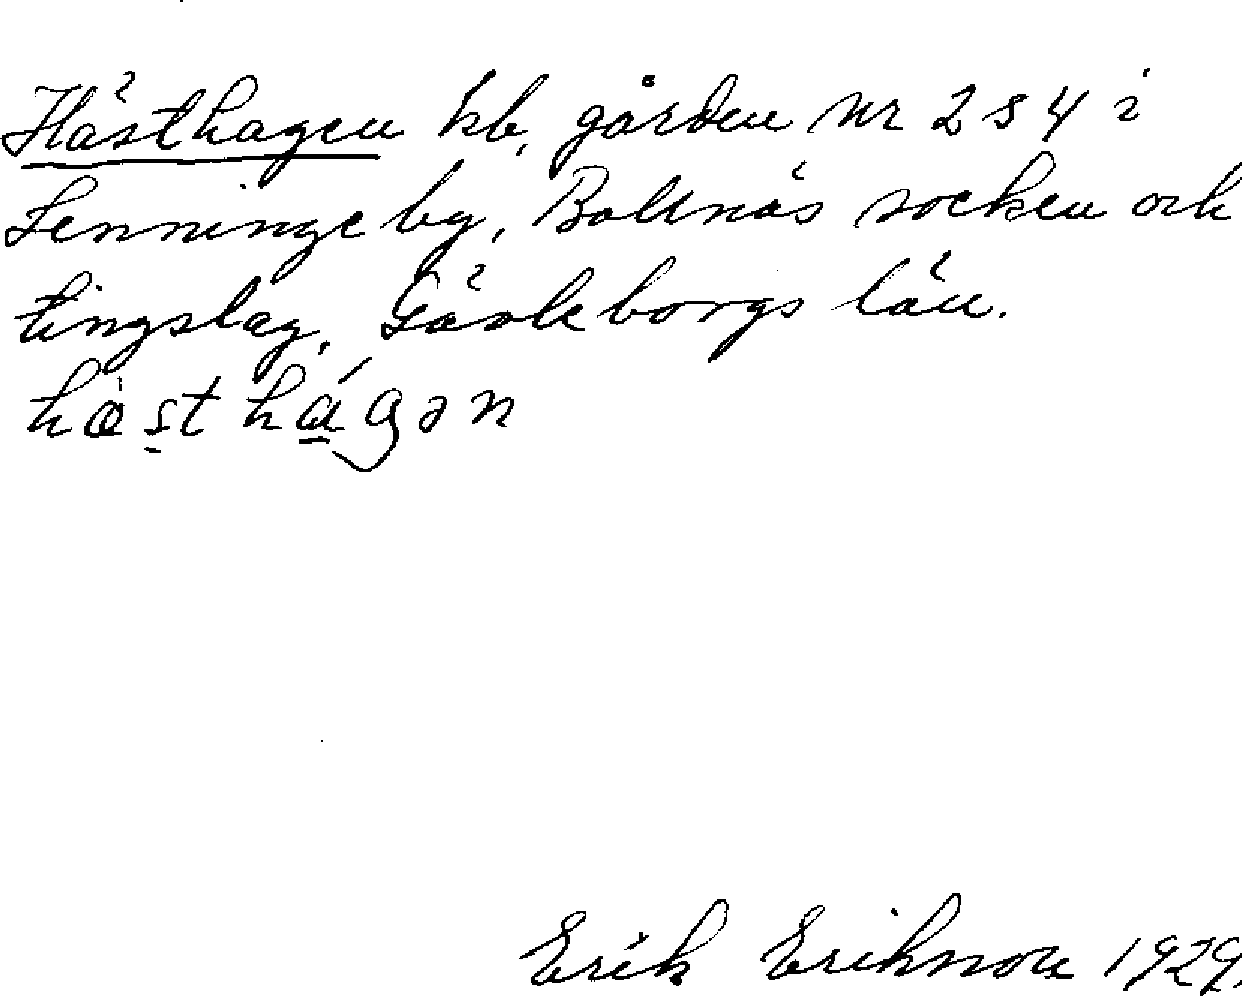 Hästhagen hb, gården nr 2 s 4 i
Lenninge by, Bollnäs socken och
tingslag, Gävleborgs län.
hæst hágən
Erik Eriksson 1929.